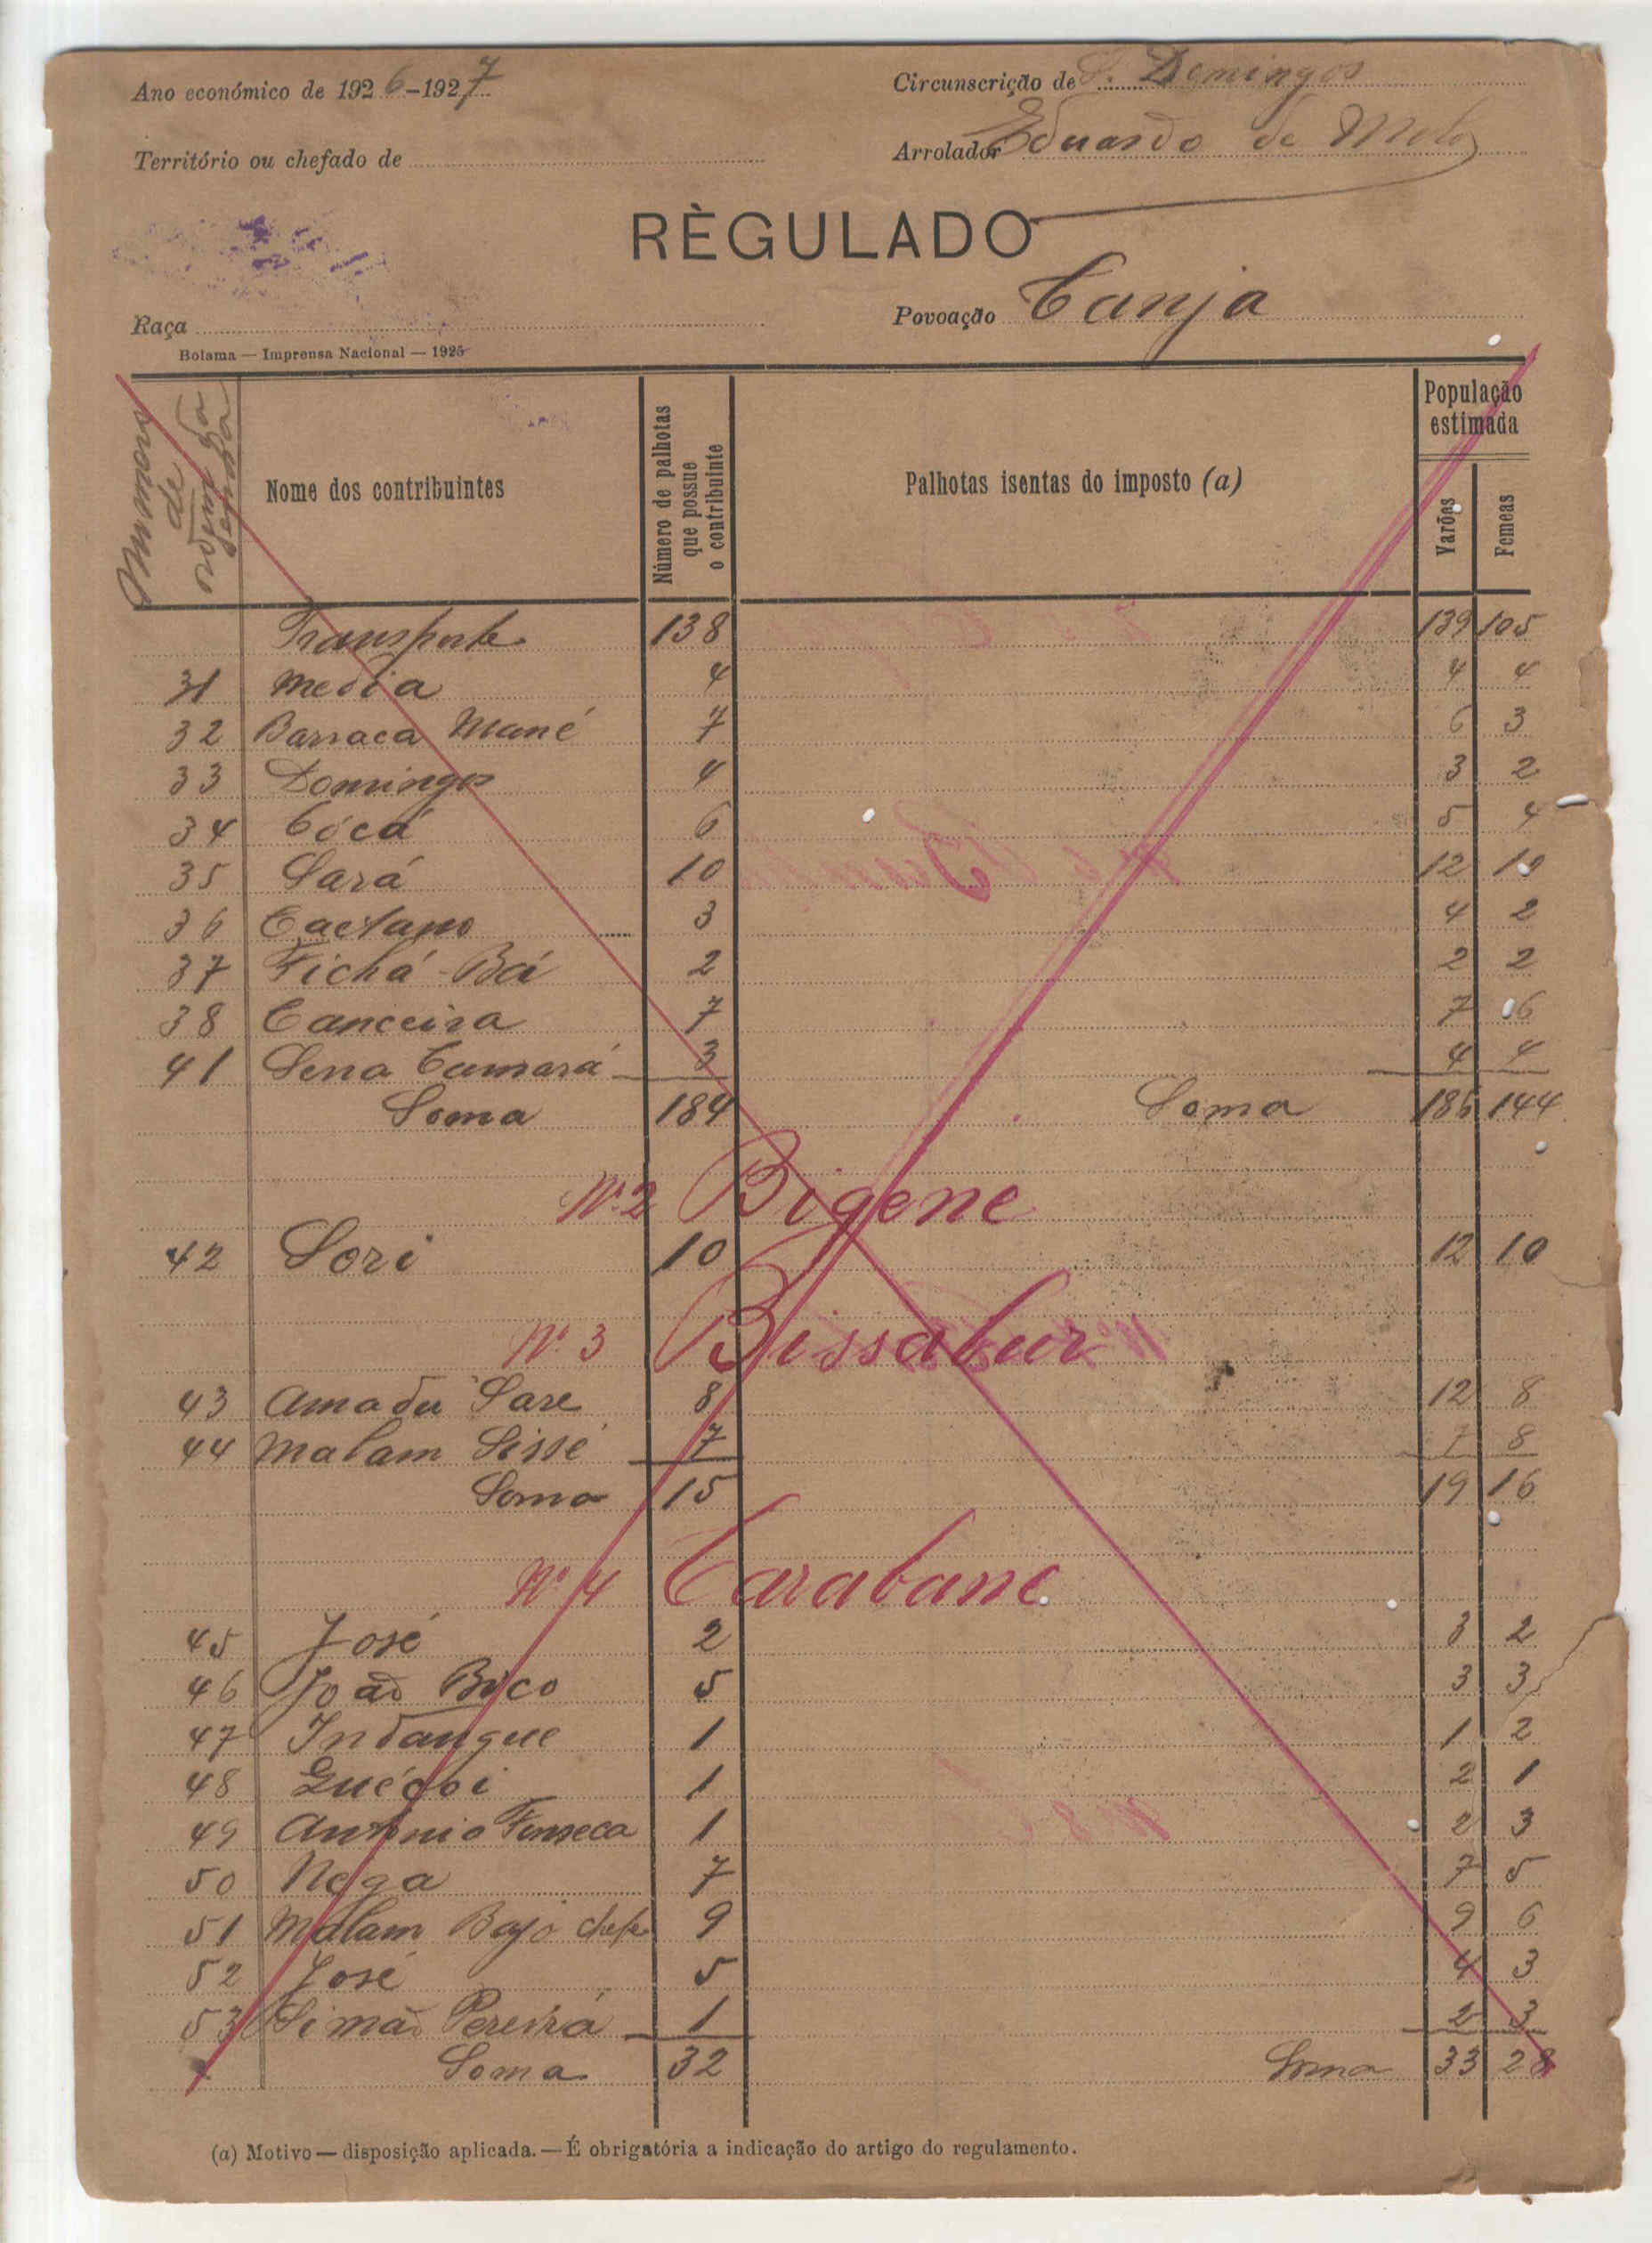 Ano económico de 1926-1927
Circunscrição de S. Domingos
Território ou chefado de
Arrolador Eduardo de Melo
RÈGULADO
Raça
Povoação Canja
Bolama — Imprensa Nacional — 1925
Numero de ordem da senha
Nome dos contribuintes
Número de palhotas que possue o contribuinte
Palhotas isentas do imposto (a)
População estimada
Varões
Femeas
Transporte 138 139 105
31 Media 4 4 4
32 Barraca Mané 7 6 3
33 Domingos 4 3 2
34 Cócá 6 5 4
35 Sará 10 12 10
36 Caetano 3 4 2
37 Fichá Bai 2 2 2
38 Canceira 7 7 6
41 Sena Camará 3 4 4
Soma 184 Soma 186 144
Nº 2 Bigene
42 Sori 10 12 10
Nº 3 Bissabur
43 Amadu Sare 8 12 8
44 Malam Sissé 7 7 8
Soma 15 19 16
Nº 4 Carabane
45 José 2 3 2
46 João Bico 5 3 3
47 Indangue 1 1 2
48 1 2 1
49 Antonio Fonseca 1 2 3
50 Nega 7 7 5
51 Malam Bajo chefe 9 9 6
52 José 5 4 3
53 Simão Pereira 1 2 3
Soma 32 Soma 33 28
(a) Motivo — disposição aplicada. — É obrigatória a indicação do artigo do regulamento.